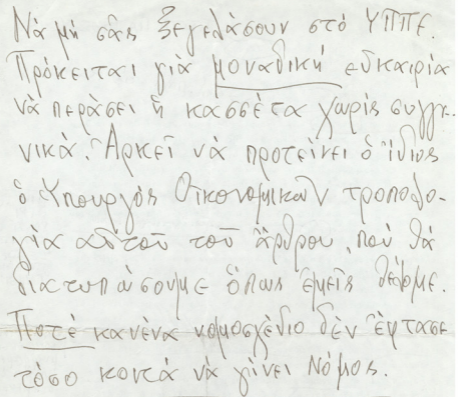 Νὰ μὴ σᾶς ξεγελάσουν στὸ ΥΠΠΕ.
Πρόκειται γιὰ μοναδικὴ εὐκαιρία
νὰ περάσει ἡ κασσέτα χωρὶς συγκ-
νικά. Ἀρκεῖ νὰ προτείνει ὁ ἴδιος
ὁ Ὑπουργὸς Οἰκονομικῶν τροπολο-
γία αὐτοῦ τοῦ ἄρθρου, ποὺ θὰ
διατυπώσουμε ὅπως ἐμεῖς θέλομε.
Ποτὲ κανένα νομοσχέδιο δὲν ἔφτασε
τόσο κοντὰ νὰ γίνει Νόμος.